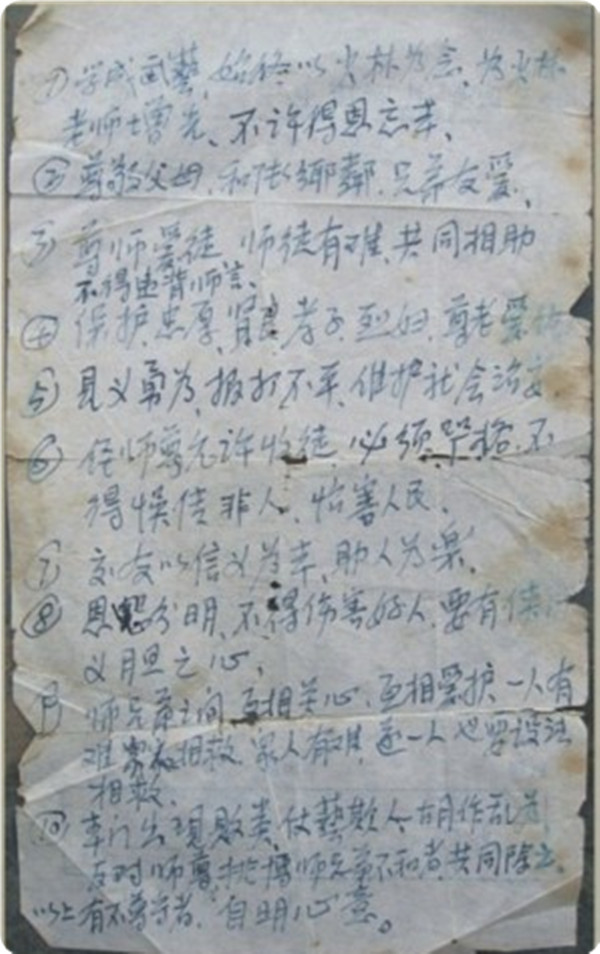 ① 学成武藝、始终以少林为念、为少林
老师增光、不许得恩忘本、
② 尊敬父母、和陸鄉鄰、兄弟友爱、
3 尊师爱徒 师徒有难、共同相助
不得违背师言、
④ 保护忠厚、賢良孝子、烈妇、尊老爱
⑤ 見义勇为、报打不平、維护社会治安
⑥ 径师尊允许收徒、必须严格、不
得悮传非人、怡害人民、
⑦ 交友以信义为本、助人为樂、
⑧ 恩怨分明、不得伤害好人、要有侠
义胆之心、
⑨ 师兄弟之间、互相关心、互相爱护、一人有
难 众相救、众人有难、逐一人也要设法
相救、
⑩ 本门出現敗类、仗藝欺人、胡作乱
反对师尊、挑撥师兄弟不和者、共同除之、
以上有不尊守者、自明心意。